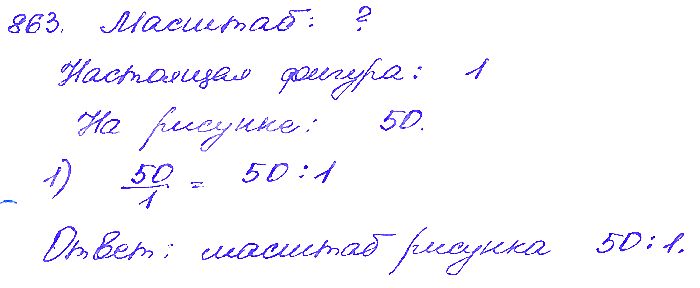 863. Масштаб: ?
Настоящая фигура: 1
На рисунке: 50.
1) 50/1 = 50:1
Ответ: масштаб рисунка 50:1.